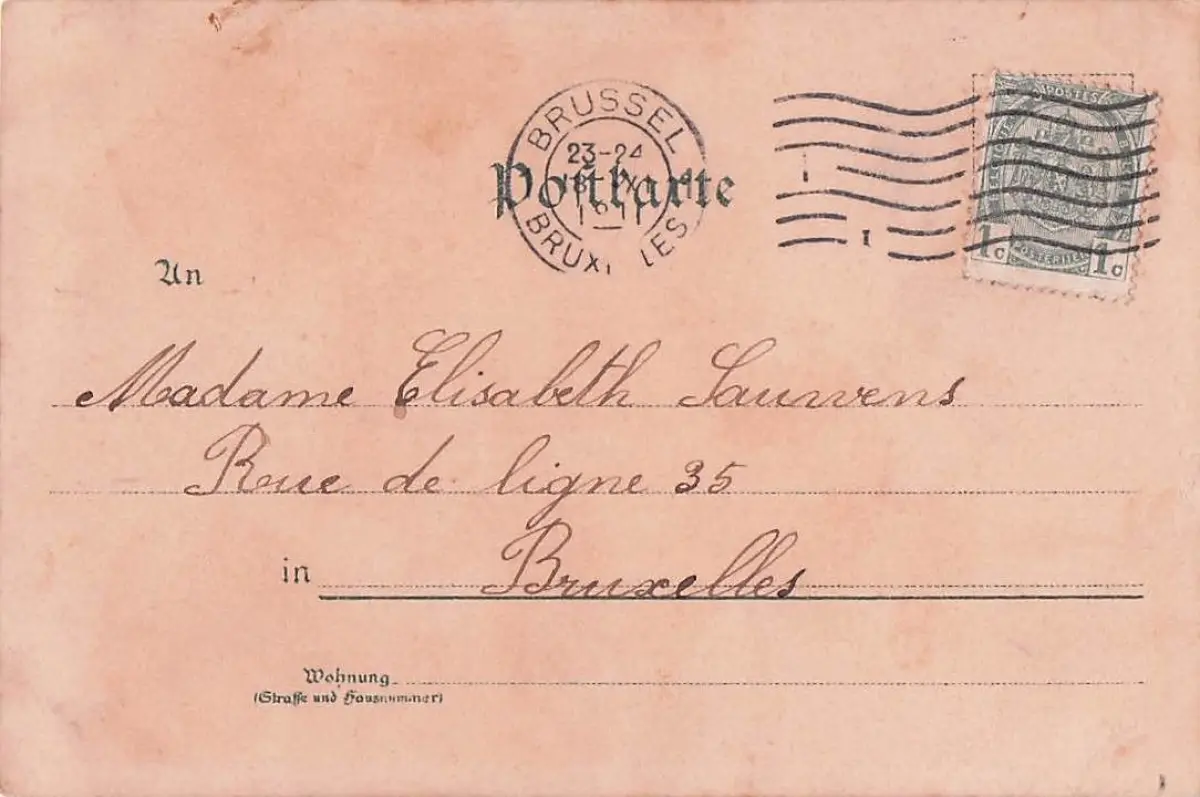 BRUSSEL
23-24
BRUX LES
Postkarte
POSTES
1c 1c
POSTERIJEN
An
Madame Elisabeth Sauwens
Rue de ligne 35
in Bruxelles
Wohnung
(Strasse und Hausnummer)